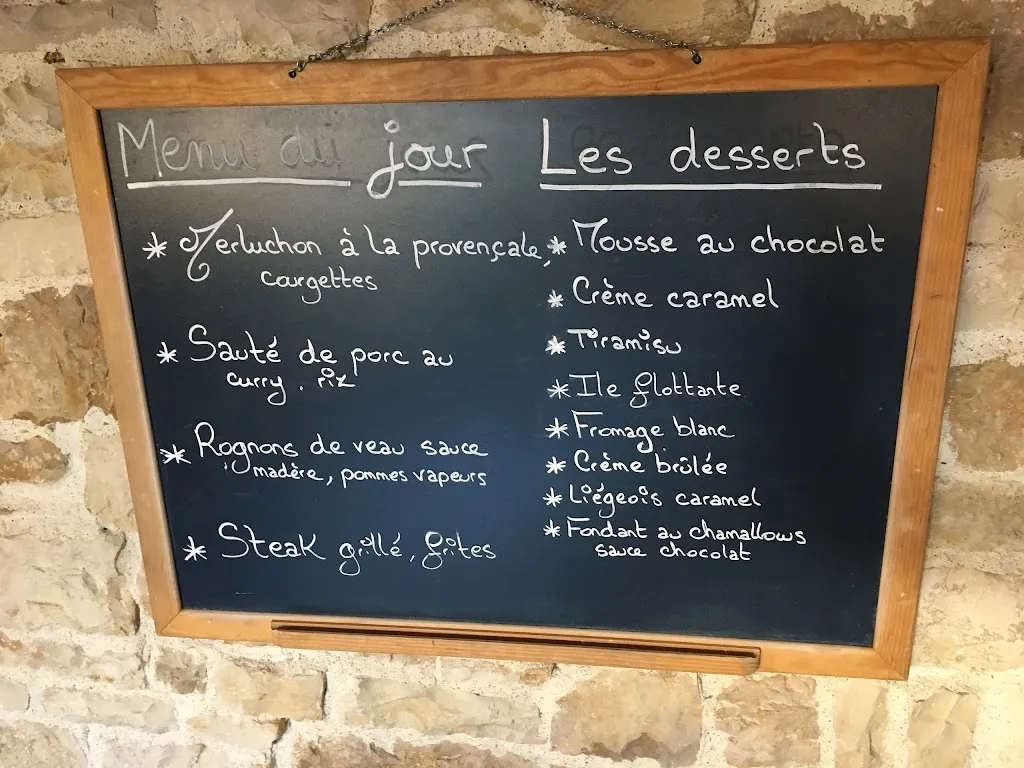 Menu du jour
* Merluchon à la provençale,
courgettes
* Sauté de porc au
curry, riz
* Rognons de veau sauce
madère, pommes vapeurs
* Steak grillé, frites
Les desserts
* Mousse au chocolat
* Crème caramel
* Tiramisu
* Ile flottante
* Fromage blanc
* Crème brûlée
* Liégeois caramel
* Fondant au chamallows
sauce chocolat